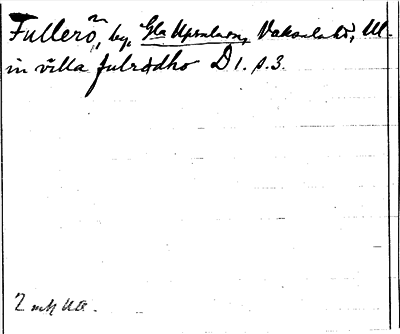 Fullerö, by, Gla Upsalavn, Vaksala hd, Ul.
in villa fulrødho D 1. s. 3.
2 mk UÖ.